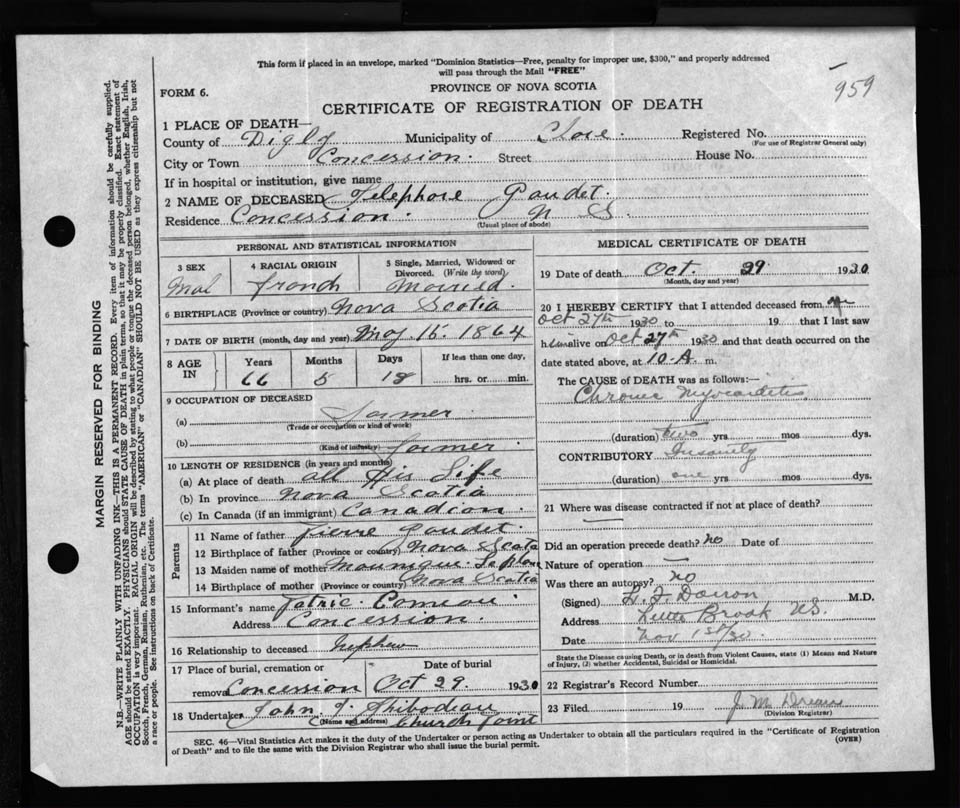 This form if placed in an envelope, marked "Dominion Statistics—Free, penalty for improper use, $300," and properly addressed
will pass through the Mail "FREE"
959
PROVINCE OF NOVA SCOTIA
FORM 6.
CERTIFICATE OF REGISTRATION OF DEATH
1 PLACE OF DEATH—
County of Digby Municipality of Clare. Registered No.
(For use of Registrar General only)
City or Town Concession. Street House No.
If in hospital or institution, give name
2 NAME OF DECEASED Telephore Gaudet.
Residence Concession. N S.
(Usual place of abode)
PERSONAL AND STATISTICAL INFORMATION
3 SEX 4 RACIAL ORIGIN 5 Single, Married, Widowed or Divorced. (Write the word)
Mal French Married.
6 BIRTHPLACE (Province or country) Nova Scotia
7 DATE OF BIRTH (month, day and year) May 15. 1864
8 AGE IN Years Months Days If less than one day,
66 5 18 hrs. or min.
9 OCCUPATION OF DECEASED
(a) Farmer
(Trade or occupation or kind of work)
(b) Farmer.
(Kind of industry)
10 LENGTH OF RESIDENCE (in years and months)
(a) At place of death all His Life
(b) In province Nova Scotia
(c) In Canada (if an immigrant) Canadian.
Parents
11 Name of father Pierre Gaudet.
12 Birthplace of father (Province or country) Nova Scota
13 Maiden name of mother
14 Birthplace of mother (Province or country) Nova Scotia
15 Informant's name Patric Comeau.
Address Concession.
16 Relationship to deceased Nephew
17 Place of burial, cremation or Date of burial
removal Concession Oct 29. 1930
18 Undertaker John J. Thibodeau
(Name and address) Church Point
MEDICAL CERTIFICATE OF DEATH
19 Date of death Oct. 29 1930
(Month, day and year)
20 I HEREBY CERTIFY that I attended deceased from
Oct 27th 1930 to 19 that I last saw
him alive on Oct 27th 1930 and that death occurred on the
date stated above, at 10-A m.
The CAUSE OF DEATH was as follows:—
Chronic Myocarditis
(duration) two yrs mos dys.
CONTRIBUTORY Insanity
(duration) one yrs mos dys.
21 Where was disease contracted if not at place of death?
Did an operation precede death? No Date of
Nature of operation
Was there an autopsy? no
(Signed) M.D.
Address Little Brook N.S.
Date Nov 1st/30.
State the Disease causing Death, or in death from Violent Causes, state (1) Means and Nature
of Injury, (2) whether Accidental, Suicidal or Homicidal.
22 Registrar's Record Number
23 Filed 19 J M
(Division Registrar)
SEC. 46—Vital Statistics Act makes it the duty of the Undertaker or person acting as Undertaker to obtain all the particulars required in the "Certificate of Registration
of Death" and to file the same with the Division Registrar who shall issue the burial permit. (OVER)
MARGIN RESERVED FOR BINDING
N.B.—WRITE PLAINLY WITH UNFADING INK—THIS IS A PERMANENT RECORD. Every item of information should be carefully supplied.
AGE should be stated EXACTLY. PHYSICIANS should STATE CAUSE OF DEATH in plain terms, so that it may be properly classified. Exact statement of
OCCUPATION is very important. RACIAL ORIGIN will be described by stating to what people or tongue the deceased person belonged, whether English, Irish,
Scotch, French, German, Russian, Ruthenian, etc. The terms "AMERICAN" or "CANADIAN" SHOULD NOT BE USED as they express citizenship but not
a race or people. See instructions on back of Certificate.